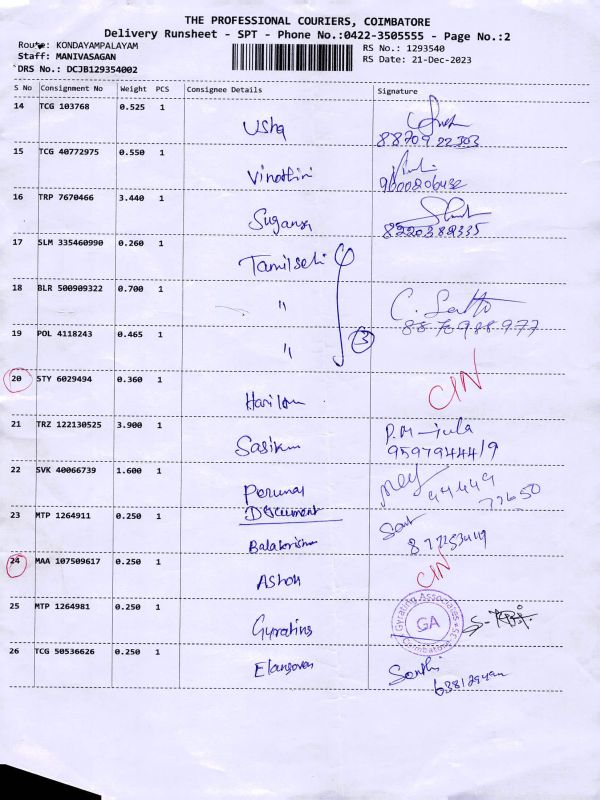 THE PROFESSIONAL COURIERS, COIMBATORE
Delivery Runsheet - SPT - Phone No.:0422-3505555 - Page No.:2
Route: KONDAYAMPALAYAM
RS No.: 1293540
Staff: MANIVASAGAN
RS Date: 21-Dec-2023
DRS No.: DCJB129354002
S No Consignment No Weight PCS Consignee Details Signature
14 TCG 103768 0.525 1 Usha
88709 22303
15 TCG 40772975 0.550 1 Vinothini
16 TRP 7670466 3.440 1 Suganya
8220389335
17 SLM 335460990 0.260 1 Tamilselvi
18 BLR 500909322 0.700 1 "
8876988977
19 POL 4118243 0.465 1 " 3
20 STY 6029494 0.360 1 CIN
21 TRZ 122130525 3.900 1 Sasikum
9597944419
22 SVK 40066739 1.600 1 Perumal
94449
77650
Document
23 MTP 1264911 0.250 1 Balakrishn
24 MAA 107509617 0.250 1 Ashok CIN
25 MTP 1264981 0.250 1 Gyrating
Gyrating Associates
GA
Coimbatore
26 TCG 50536626 0.250 1 Elangovan
Santhi